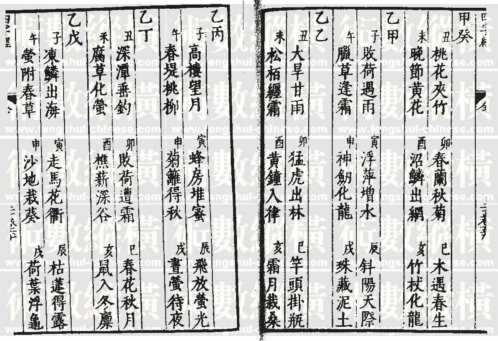 甲癸
丑 桃花夾竹 卯 春蘭秋菊 巳 木遇春生
未 晚節黃花 酉 沼鱗出網 亥 竹杖化龍
乙甲
子 敗荷遇雨 寅 浮萍增水 辰 斜陽天際
午 臘草逢霜 申 神劒化龍 戌 珠藏泥土
乙乙
丑 大旱甘雨 卯 猛虎出林 巳 竿頭掛瓶
未 松栢經霜 酉 黃鐘入律 亥 霜月栽桑
乙丙
子 高樓望月 寅 蜂房堆蜜 辰 飛放螢光
午 春堤桃柳 申 菊籬得秋 戌 晝螢待夜
乙丁
丑 深潭垂釣 卯 敗荷遭霜 巳 春花秋月
未 腐草化螢 酉 樵薪深谷 亥 鼠入冬廩
乙戊
子 凍鱗出海 寅 走馬花衢 辰 枯蓮得露
午 螢附春草 申 沙地栽葵 戌 荷葉浮龜